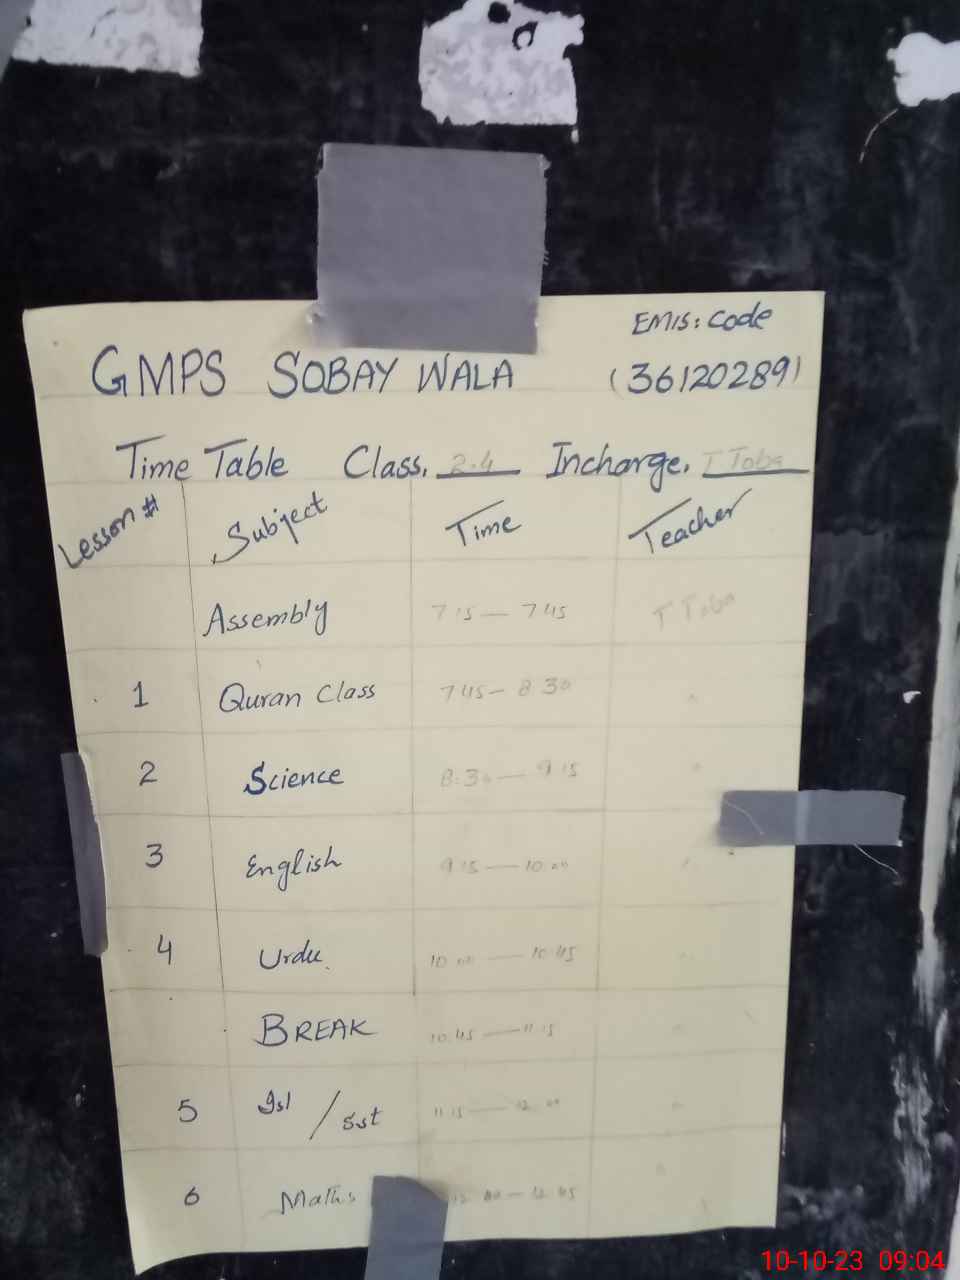 EMIS: Code
GMPS SOBAY WALA (36120289)
Time Table Class. 2.4 Incharge. T Toba
Lesson # Subject Time Teacher
Assembly 7 15 — 7 45 T Toba
1 Quran Class 7 45 — 8 30 "
2 Science 8:30 — 9 15 "
3 English 9 15 — 10 00 "
4 Urdu 10 00 — 10 45 "
BREAK 10 45 — 11 15 "
5 Isl / Sst 11 15 — 12 00 "
6 Maths 12 00 — 12 45 "
10-10-23 09:04